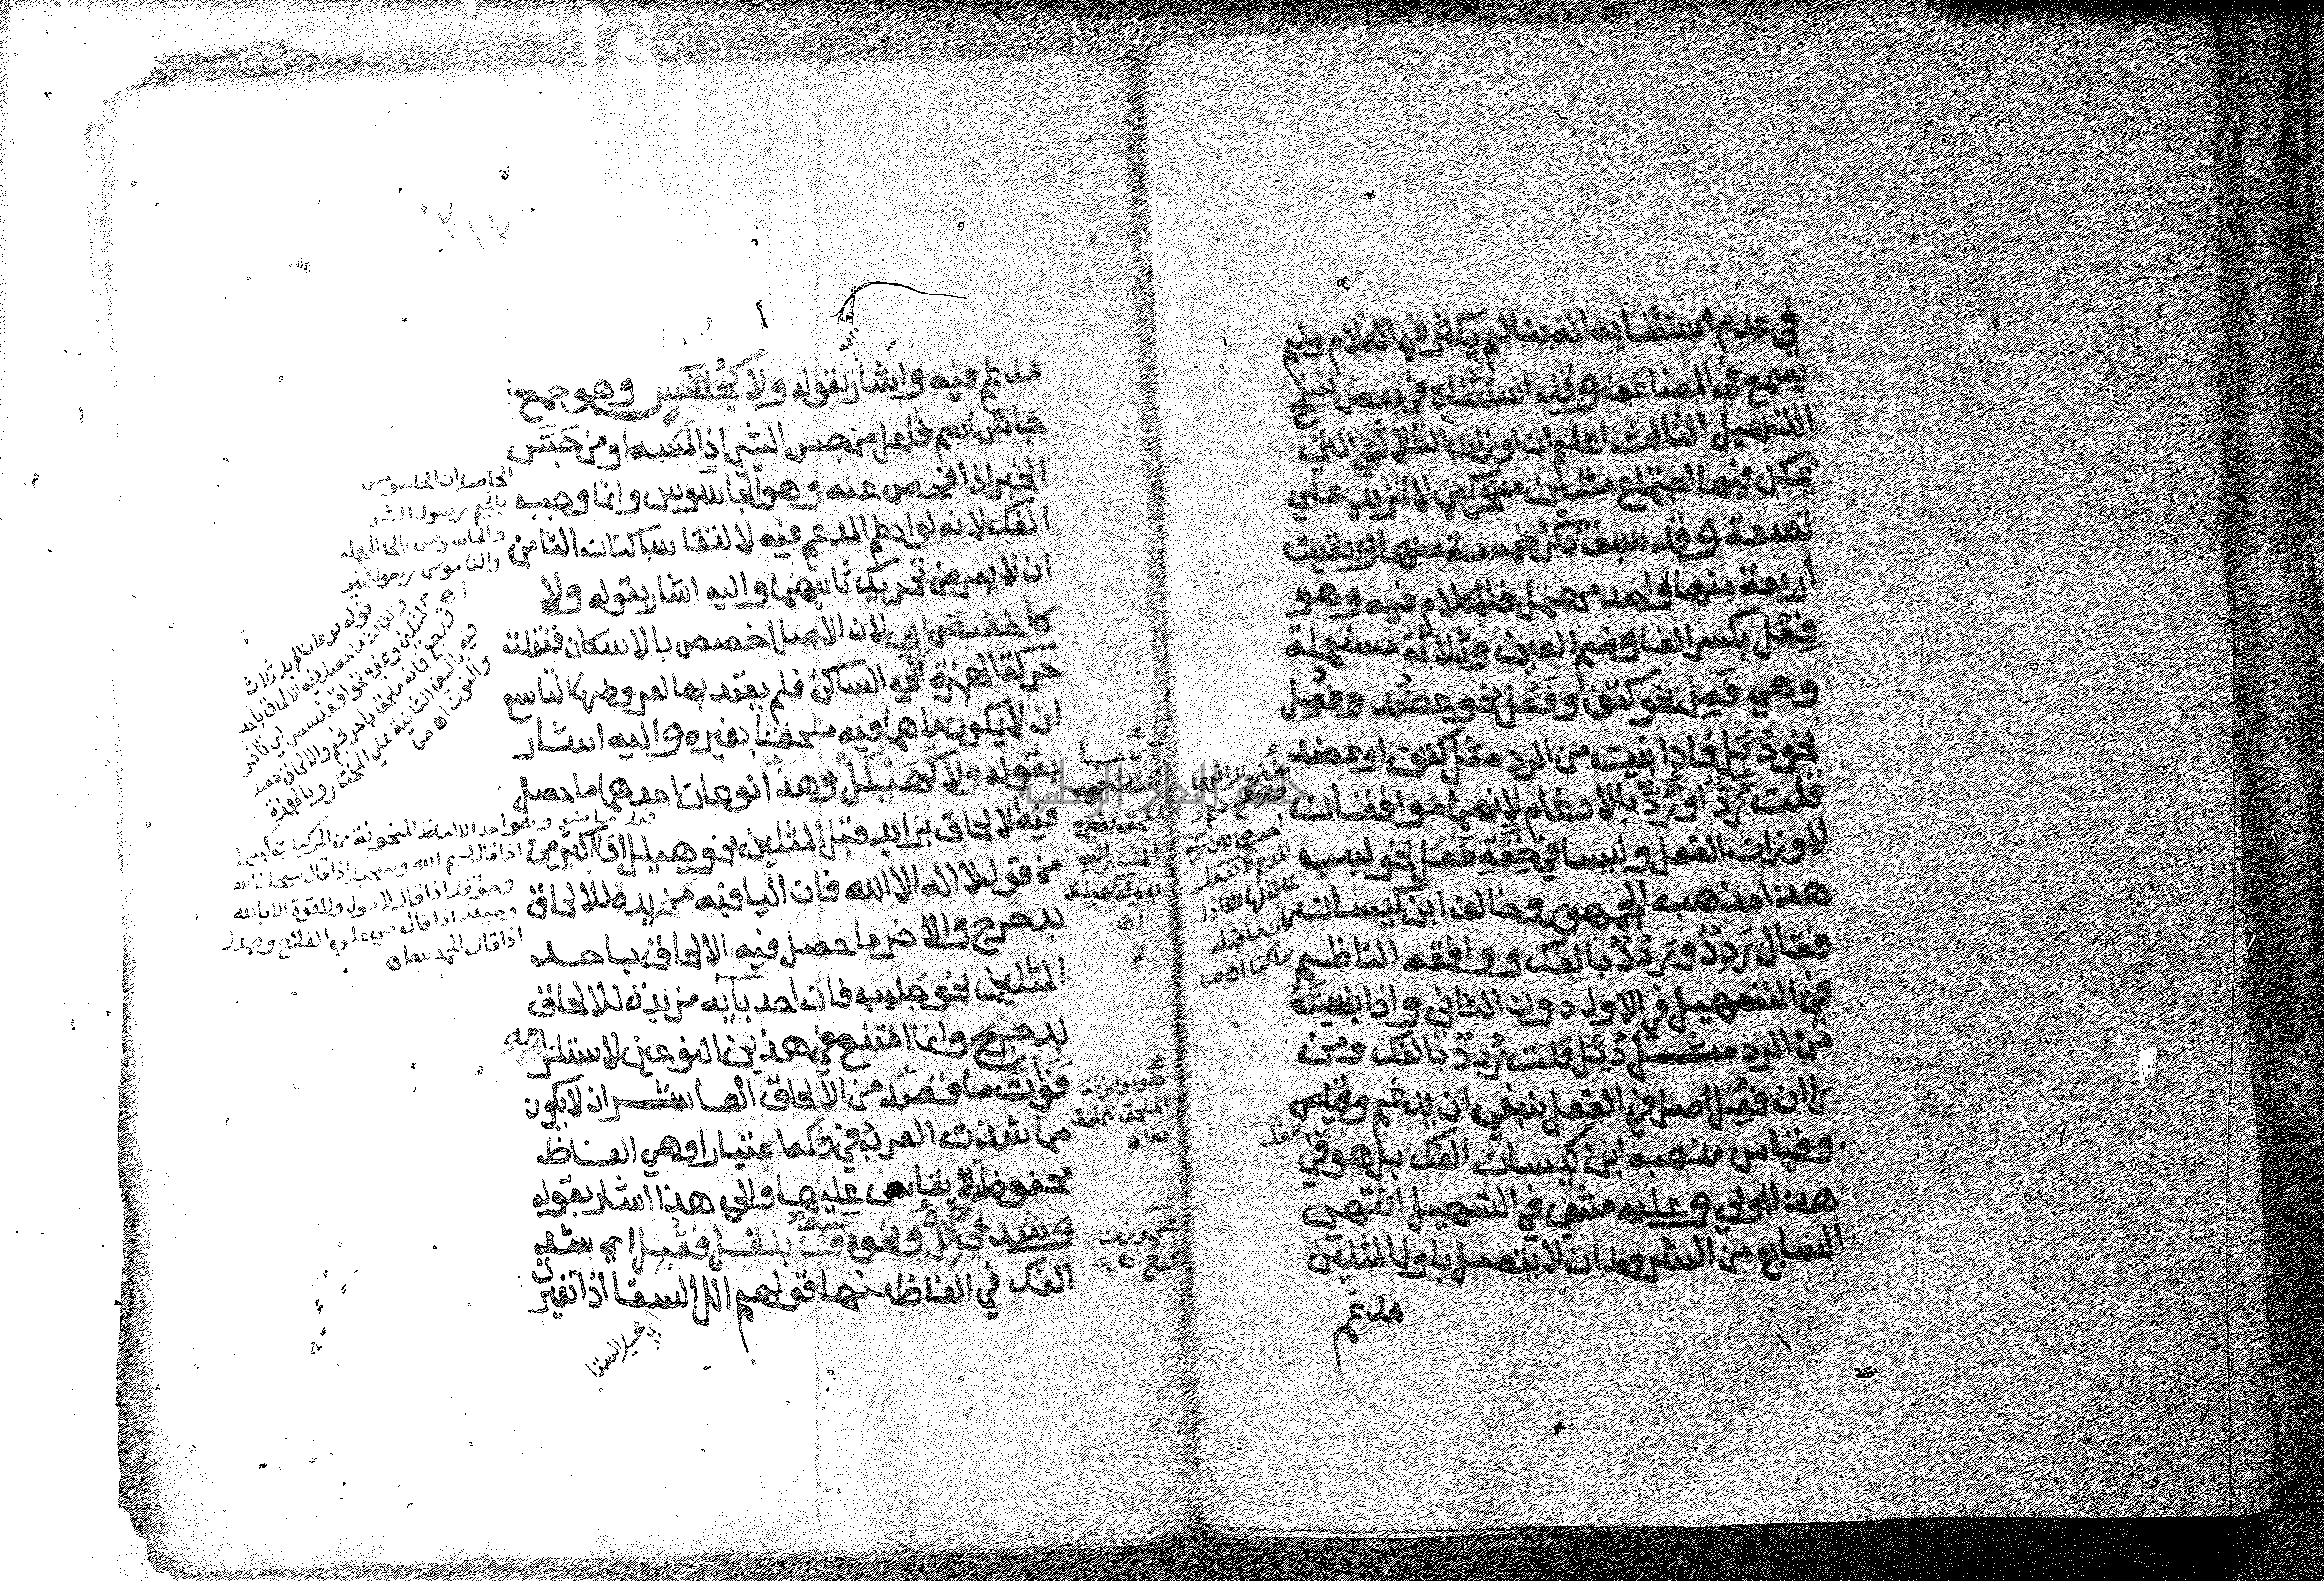 في عدم استثنايه انه بنا لم يكثر في الكلام ولم
يسمع في المضاعف وقد استثناه في بعض نسخ
التسهيل الثالث اعلم ان اوزان الثلاثي التي
يمكن فيها اجتماع مثلين متحركين لا تزيد علي
تسعة وقد سبق ذكر خمسة منها وبقيت
اربعة منها واحد مهمل فلا كلام فيه وهو
فِعُل بكسر الفا وضم العين وثلاثة مستعملة
وهي فَعِل نحو كتف وفَعُل نحو عضد وفُعِل
نحو دُئِل فاذا بنيت من الرد مثل كتف او عضد
قلت رَدّ او رَدّ بالادغام لانهما موافقان
لاوزان الفعل وليسا في خفة فَعَل نحو لبب
هذا مذهب الجمهور وخالف ابن كيسان
فقال رَدِدٌ ورَدُدٌ بالفك ووافقه الناظم
في التسهيل في الاول دون الثاني واذا بنيت
من الرد مثل دُئِل قلت رُدِدٌ بالفك ومن
راان فُعِل اصل في الفعل ينبغي ان يدغم وقياس
وقياس مذهب ابن كيسان الفك بل هو في
هذا اولي وعليه مشي في التسهيل انتهي
السابع من الشروط ان لا يتصل باول المثلين
مدغم
الفك
احدهما لان حركة
المدغم لا تنقل
لما قبلها الا اذا
كان ما قبله
ساكنا اه ص
مدغم فيه واشار بقوله ولا كجُسَّسٍ وهو جمع
جاسّ اسم فاعل من جس الشي اذا لمسه او من جس
الخبر اذا فحص عنه وهو الجاسوس وانما وجب
الفك لانه لو ادغم المدغم فيه لالتقا ساكنان الثامن
ان لا يعرض تحريك ثانيهما واليه اشار بقوله ولا
كاخصص ابي لان الاصل اخصص بالاسكان فنقلت
حركة الهمزة الي الساكن فلم يعتد بها لعروضها التاسع
ان لا يكون ما هما فيه ملحقا بغيره واليه اشار
بقوله ولا كهيلل وهذا نوعان احدهما ما حصل
فيه الالحاق بزايد قبل المثلين نحو هيلل اذا اكثر من
من قول لا اله الا الله فان اليا فيه مزيدة للالحاق
بدحرج والاخر ما حصل فيه الالحاق باحد
المثلين نحو جلبب فان احد بايه مزيدة للالحاق
بدحرج وانما امتنع في هذين النوعين لاستلزامه
فوات ما قصد من الالحاق العاشر ان لا يكون
مما شذت العرب في فكه اختيارا وهي الفاظ
محفوظة لا يقاس عليها والي هذا اشار بقوله
وشذ في الل ونحوه فك بنقل فقبل اي شذ
الفك في الفاظ منها قولهم الل السقا اذا تغيرت
الحاصل ان الجاسوس
بالجيم رسول الشر
والحاسوس بالحا المهمله
والناموس رسول الخير
اه
من المركبات كبسمل
اذا قال بسم الله وسبحل اذا قال سبحان الله
وحوقل اذا قال لا حول ولا قوة الا بالله
وحيعل اذا قال حي علي الفلاح وحمدل
اذا قال الحمد لله اه
ملحق بغيره
المشير اليه
بقوله كهيلل
اه
هو موازنة
الملحق للملحق
به اه
علي وزن
فرح اه